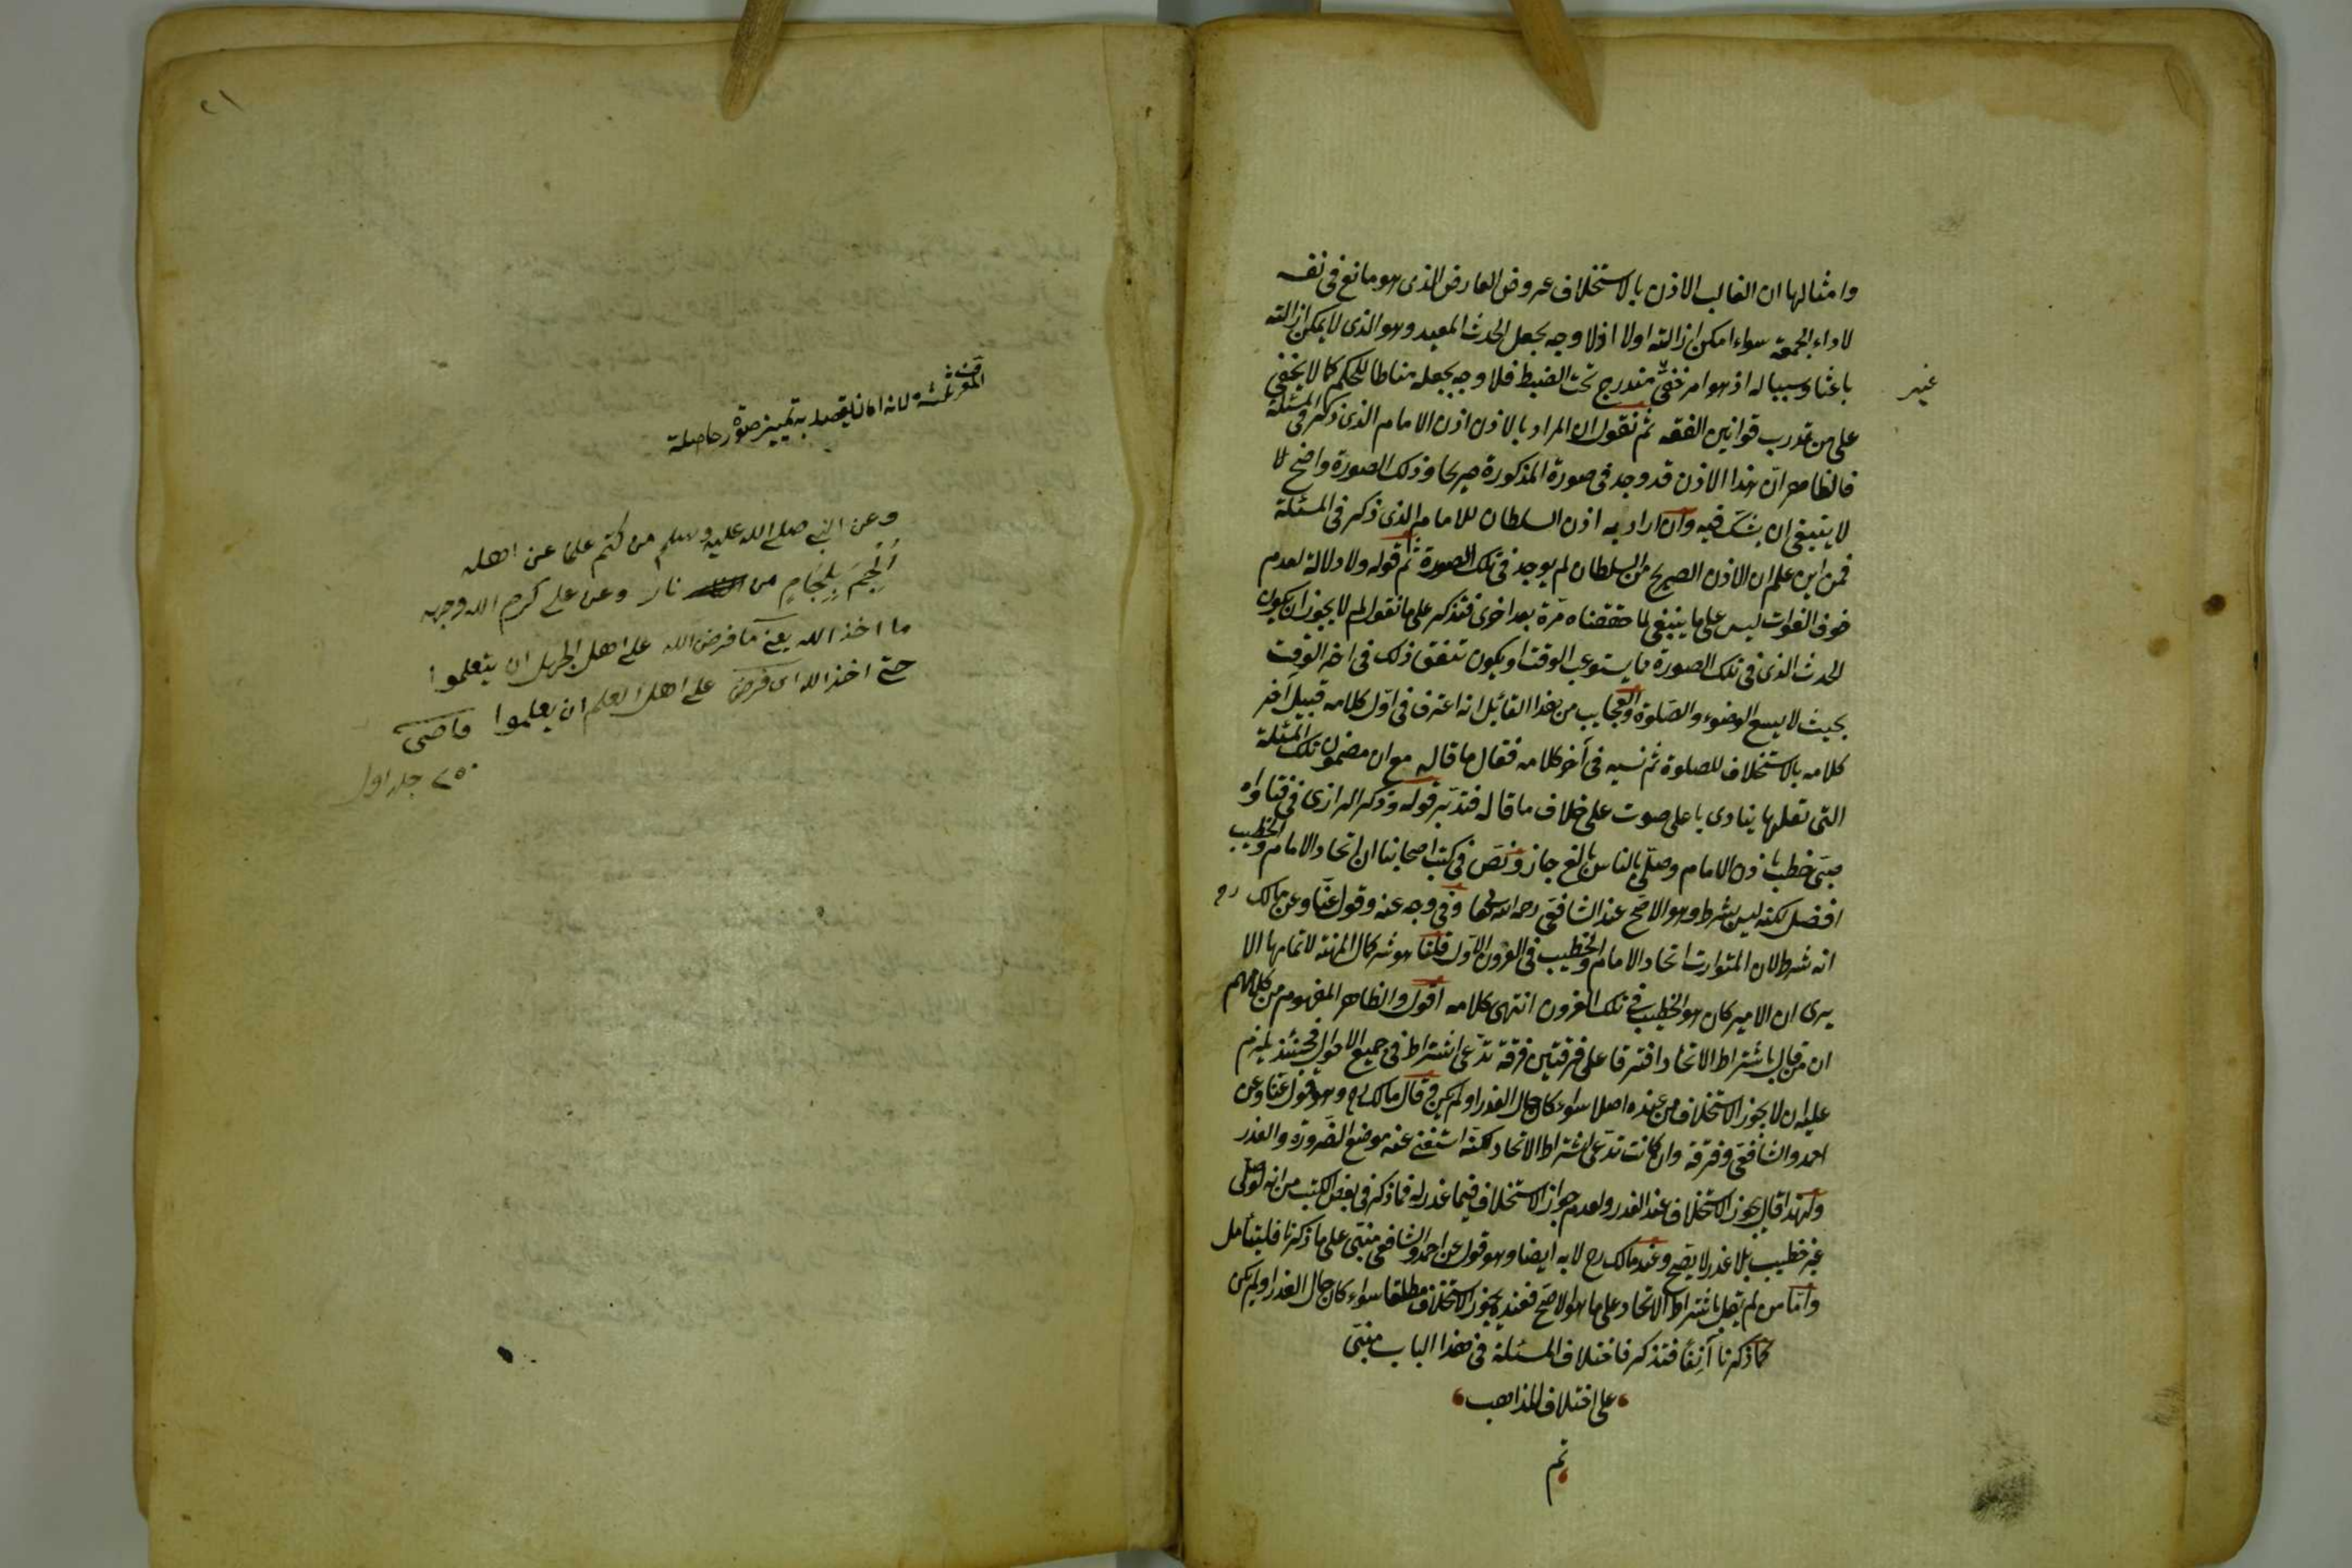 وامثالها ان الغالب الاذن بالاستخلاف عروض العارض الذى هو مانع فى نفسه
لاداء الجمعة سواء امكن ازالته اولا اذ لا وجه بجعل الحدث المعيد وهو الذى لا يمكن ازالته
غير
باعثا وسببا له اذ هو امر خفىّ مندرج تحت الضبط فلا وجه بجعله مناطا للحكم كما لا يخفى
على من تدرب قوانين الفقه ثم نقول ان المراد بالاذن اذن الامام الذى ذكر فى المسئلة
فالظاهر انّ هذا الاذن قد وجد فى صورة المذكورة صريحا وذلك الصورة واضح لا
لا ينبغى ان يشكّ فيه وان اراد به اذن السلطان للامام الذى ذكر فى المسئلة
فمن اين علم ان الاذن الصريح من السلطان لم يوجد فى تلك الصورة ثم قوله ولا دلالة لعدم
خوف الفوات ليس على ما ينبغى لما حققناه مرة بعد اخرى فتذكر على ما نقول لم لا يجوز ان يكون
الحدث الذى فى تلك الصورة ما يستوعب الوقت او يكون تتفق ذلك فى اخر الوقت
بحيث لا يسع الوضوء والصلوة والعجايب من هذا القائل انه اعترف فى اوّل كلامه قبيل آخر
كلامه بالاستخلاف للصلوة ثم نسيه فى آخر كلامه فقال ما قاله مع ان مضمون تلك المسئلة
التى نقلها ينادى باعلى صوت على خلاف ما قال فتدبّر قوله وذكر الرازى فى فتاواه
صبىّ خطب باذن الامام وصلّى بالناس بالغ جاز ونصّ فى كتب اصحابنا ان اتحاد الامام والخطيب
افضل لكنه ليس بشرط وهو الاصحّ عند الشافعى رحمه الله وفى وجه عنه وقول عنا وعن مالك رح
انه شرط لان المتوارث اتحاد الامام والخطيب فى القرون الاوّل قلنا هو شركال المنة لاتمامها الا
يرى ان الامير كان هو الخطيب فى تلك القرون انتهى كلامه اقول والظاهر المفهوم من كلامهم
ان من قال باشتراط الاتحاد افترقا على فرقتين فرقة تدّعى اشتراط فى جميع الاحوال فحينئذ يلزم
عليه ان لا يجوز الاستخلاف من عنده اصلا سواء كان حال العذر او لم يكن قال مالك رح وهو قول عنا وعن
احمد والشافعى وفرقة وان كانت تدّعى اشتراط الاتحاد لكنه استغنى عنه موضع الضرورة والعذر
ولهذا قال بجوز الاستخلاف عند العذر ولعدم جواز الاستخلاف فيما عذر له فما ذكر فى بعض الكتب من انه لو صلى
غير خطيب بلا عذر لا يصح وعند مالك رح لا به ايضا وهو قول عن احمد والشافعى مبنىّ على ما ذكرنا فليتأمل
وامّا من لم يقل باشتراط الاتحاد على ما هو الاصحّ فعنده يجوز الاستخلاف مطلقا سواء كان حال العذر او لم يكن
كما ذكرنا آنفا فتذكر فاختلاف المسئلة فى هذا الباب مبنىّ
على اختلاف المذاهب
تم
٢١
لانه اما يقصد به تمييز صورة حاصلة
وعن النبى صلى الله عليه وسلم من كتم علما عن اهله
أُلْجِمَ بِلِجَامٍ من نار وعن على كرم الله وجهه
ما اخذ الله يعنى ما فرض الله على اهل الجهل ان يتعلموا
حتى اخذ الله اى فرض على اهل العلم ان يعلموا قاضى
٧٥٠ جلد اول